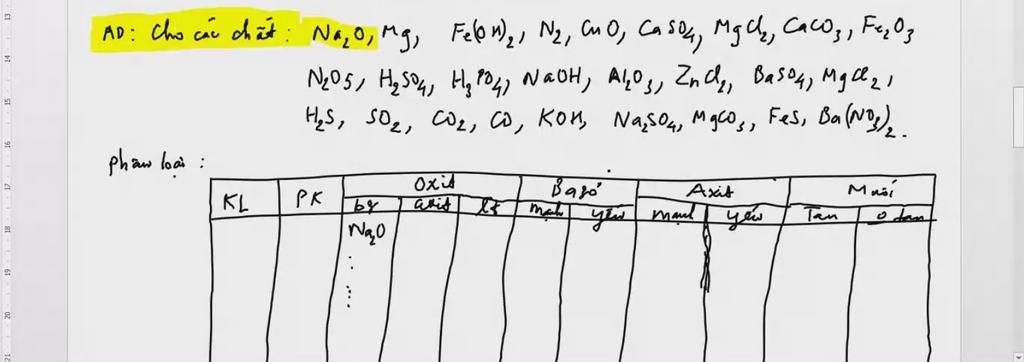 AD: Cho các chất: Na₂O, Mg, Fe(OH)₂, N₂, CuO, CaSO₄, MgCl₂, CaCO₃, Fe₂O₃
N₂O₅, H₂SO₄, H₃PO₄, NaOH, Al₂O₃, ZnCl₂, BaSO₄, MgCl₂,
H₂S, SO₂, CO₂, CO, KOH, Na₂SO₄, MgCO₃, FeS, Ba(NO₃)₂.
phân loại :
KL PK Oxit Bazơ Axit Muối
bz axit lt mạnh yếu mạnh yếu Tan o tan
Na₂O
13
14
15
16
17
18
19
20
21